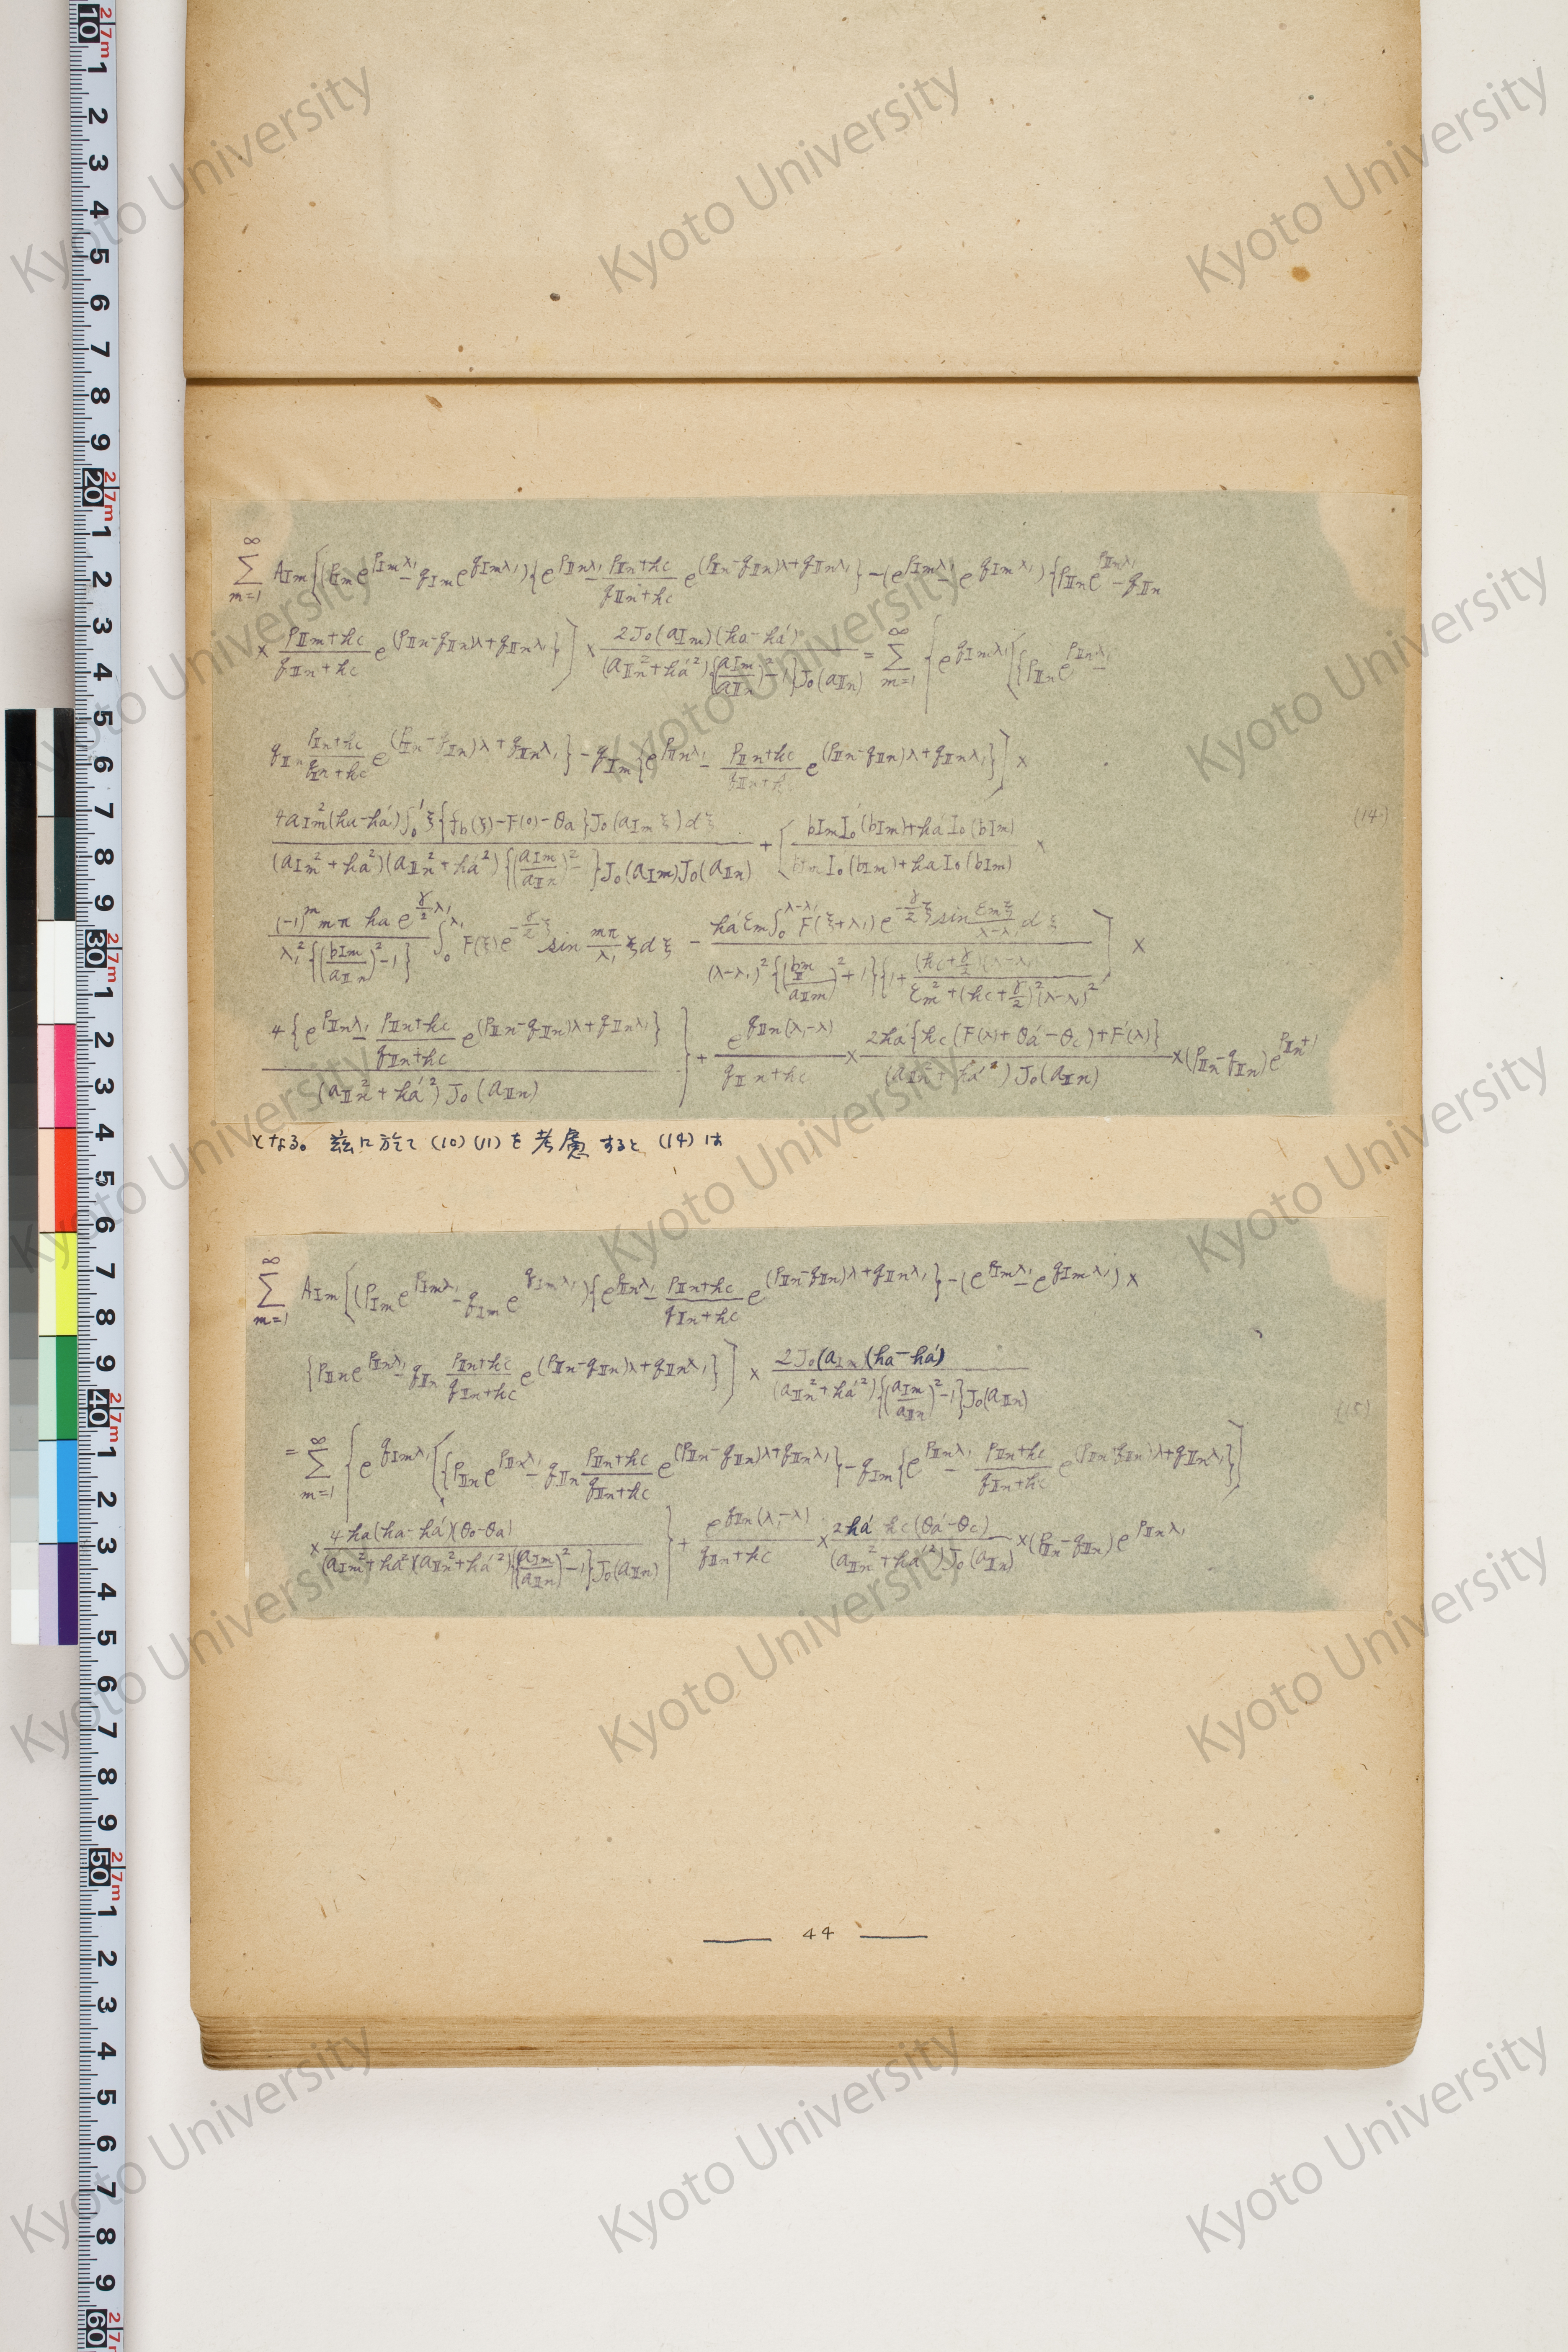 ∞Σm=1 A_Im[(p_Im e^{p_Im λ₁} − q_Im e^{q_Im λ₁}){e^{p_IIn λ₁} − (p_IIn+hc)/(q_IIn+hc) e^{(p_IIn−q_IIn)λ+q_IIn λ₁}} − (e^{p_Im λ₁} − e^{q_Im λ₁}){p_IIn e^{p_IIn λ₁} − q_IIn
× (p_IIm+hc)/(q_IIn+hc) e^{(p_IIn−q_IIn)λ+q_IIn λ₁}}] × 2J₀(a_Im)(ha−há)/(a_IIn²+há²){(a_Im/a_IIn)²−1}J₀(a_IIn) = ∞Σm=1 {e^{q_Im λ₁}[{p_IIn e^{p_IIn λ₁} −
q_IIn (p_IIn+hc)/(q_IIn+hc) e^{(p_IIn−q_IIn)λ+q_IIn λ₁}} − q_Im{e^{p_IIn λ₁} − (p_IIn+hc)/(q_IIn+h) e^{(p_IIn−q_IIn)λ+q_IIn λ₁}}] ×
4a_Im²(ha−há)∫₀¹ξ{f_b(ξ)−F(0)−θa}J₀(a_Im ξ)dξ/(a_Im²+ha²)(a_IIn²+há²){(a_Im/a_IIn)²−}J₀(a_Im)J₀(a_IIn) + [(b_Im I₀(b_Im)+há I₀(b_Im))/(b_Im I₀(b_Im)+ha I₀(b_Im)) × (14)
(−1)^m mπ ha e^{γ/2 λ₁}/λ₁²{(b_Im/a_IIn)²−1} ∫₀^{λ₁}F(ξ)e^{−γ/2 ξ} sin mπ/λ₁ ξdξ − há εm∫₀^{λ−λ₁}F(ξ+λ₁)e^{−γ/2 ξ} sin εmξ/(λ−λ₁) dξ/(λ−λ₁)²{(b_m/a_IIm)²+1}{1+(hc+γ/2)(λ−λ₁)/εm²+(hc+γ/2)²(λ−λ₁)²] ×
4{e^{p_IIn λ₁} − (p_IIn+hc)/(q_IIn+hc) e^{(p_IIn−q_IIn)λ+q_IIn λ₁}}/(a_IIn²+há²)J₀(a_IIn)} + e^{q_IIn(λ₁−λ)}/(q_IIn+hc) × 2há{hc(F(λ)+θá−θc)+F′(λ)}/(a_IIn²+há²)J₀(a_IIn) × (p_IIn−q_IIn)e^{p_IIn+}
となる。玆に於て (10) (11) を考慮すると (14) は
∞Σm=1 A_Im[(p_Im e^{p_Im λ₁} − q_Im e^{q_Im λ₁}){e^{p_IIn λ₁} − (p_IIn+hc)/(q_IIn+hc) e^{(p_IIn−q_IIn)λ+q_IIn λ₁}} − (e^{p_Im λ₁} − e^{q_Im λ₁}) ×
{p_IIn e^{p_IIn λ₁} − q_IIn (p_IIn+hc)/(q_IIn+hc) e^{(p_IIn−q_IIn)λ+q_IIn λ₁}}] × 2J₀(a_Im)(ha−há)/(a_IIn²+há²){(a_Im/a_IIn)²−1}J₀(a_IIn) (15)
= ∞Σm=1 {e^{q_Im λ₁}[{p_IIn e^{p_IIn λ₁} − q_IIn (p_IIn+hc)/(q_IIn+hc) e^{(p_IIn−q_IIn)λ+q_IIn λ₁}} − q_Im{e^{p_IIn λ₁} − (p_IIn+hc)/(q_IIn+hc) e^{(p_IIn−q_IIn)λ+q_IIn λ₁}}]
× 4ha(ha−há)(θ₀−θa)/(a_Im²+ha²)(a_IIn²+há²){(a_Im/a_IIn)²−1}J₀(a_IIn)} + e^{q_IIn(λ₁−λ)}/(q_IIn+hc) × 2há hc(θá−θc)/(a_IIn²+há²)J₀(a_IIn) × (p_IIn−q_IIn)e^{p_IIn λ₁}
44